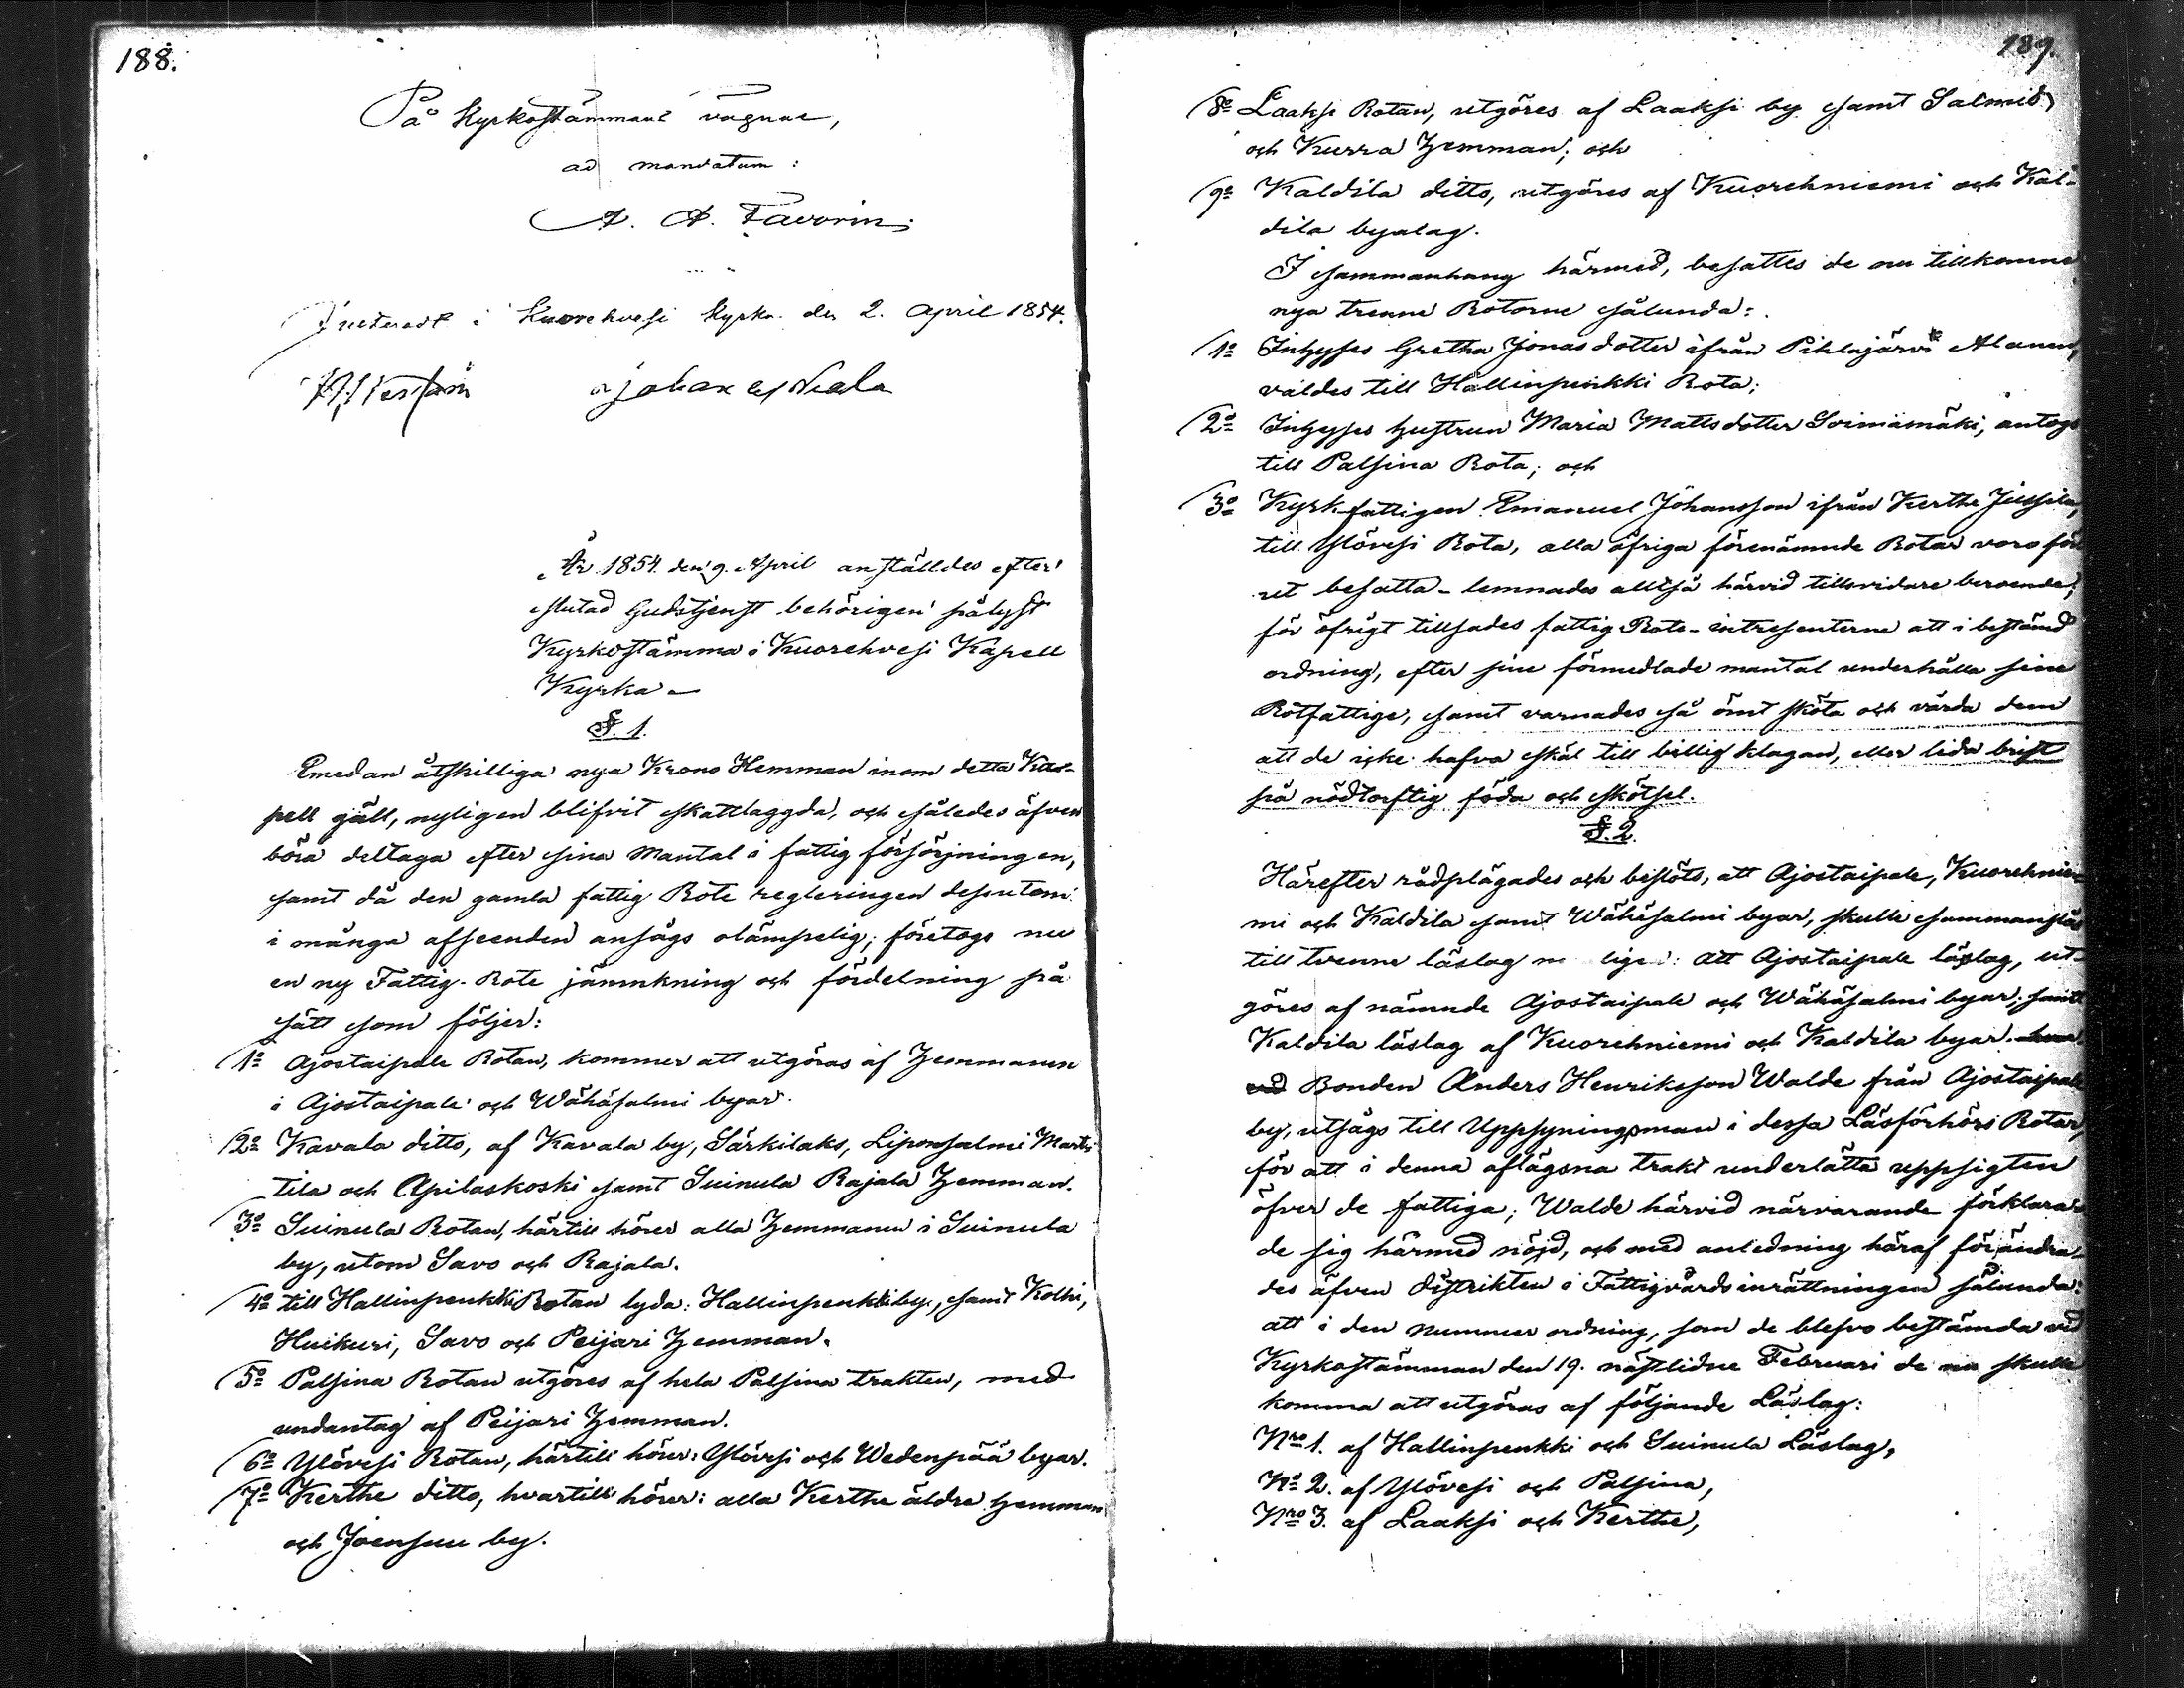 188.
På Kyrkostämmans vägnar,
ad mandatum:
A. A. Favorin;
Justeradt i Kuorehvesi Kyrka den 2. April 1854.
Johan
År 1854 den 9. April anställdes efter
slutad Gudstjenst behörigen pålyst
Kyrkostämma i Kuorehvesi Kapell
Kyrka –
§. 1.
Emedan åtskilliga nya Krono Hemman inom detta Ka-
pell gäll, nyligen blifvit skattlaggda, och således äfven
böra deltaga efter sina Mantal i fattig försörjningen,
samt då den gamla fattig Rote regleringen dessutom
i många afseenden ansågs olämpelig; företogs nu
en ny Fattig-Rote jämnkning och fördelning på
sätt som följer:
1o Ajostaipale Rotan, kommer att utgöras af Hemmanen
i Ajostaipale och Wähäsalmi byar.
2o Kavala ditto, af Kavala by, Särkilaks, Liponsalmi Mart-
tila och Apilaskoski samt Suinula Rajala Hemman.
3o Suinula Rotan, härtill hörer alla Hemmanen i Suinula
by, utom Savo och Rajala.
4o till Hallinpenkki Rotan lyda: Hallinpenkki by, samt Kolhi,
Huikuri, Savo och Peijari Hemman.
5o Palsina Rotan utgöres af hela Palsina trakten, med
undantag af Peijari Hemman.
6o Ylövesi Rotan, härtill hörer: Ylövesi och Wedenpää byar.
7o Kerthe ditto, hvartill hörer: alla Kerthe äldre Hemman
och Joensuu by.
189.
8o Laaksi Rotan, utgöres af Laaksi by samt Salmis
och Kurra Hemman; och
9o Kaldila ditto, utgöres af Kuorehniemi och Kal-
dila byalag.
I sammanhang härmed, besattes de nu tillkomne
nya trenne Rotorne sålunda:
1o Inhyses Gretha Jonasdotter ifrån Pihlajärvi Alanen,
valdes till Hallinpenkki Rota;
2o Inhyses hustrun Maria Mattsdotter Soinismäki, antogs
till Palsina Rota; och
3o Kyrkfattigen Emanuel Johansson ifrån Kerthe Jussila,
till Ylövesi Rota, alla öfriga förenämnde Rotar voro för-
ut besatta – lemnades alltså härvid tillsvidare beroende;
för öfrigt tillsades fattig Rote-intressenterne att i bestämd
ordning, efter sine förmedlade mantal underhålla sine
Rotfattige, samt varnades så ömt sköta och vårda dem
att de icke hafva skäl till billig klagan, eller lida brist
på nödtorftig föda och skötsel.
§. 2.
Härefter rådplägades och beslöts, att Ajostaipale, Kuorehnie-
mi och Kaldila samt Wähäsalmi byar, skulle sammanslås
till tvenne läslag att Ajostaipale läslag, ut-
göres af nämnde Ajostaipale och Wähäsalmi byar; samt
Kaldila läslag af Kuorehniemi och Kaldila byar.
Bonden Anders Henriksson Walde från Ajostaipale
by, utsågs till Uppsyningsman i dessa Läsförhörs Rotar,
för att i denna aflägsna trakt underlätta uppsigten
öfver de fattiga; Walde härvid närvarande förklara-
de sig härmed nöjd, och med anledning häraf förändra-
des äfven distrikten i Fattigvårdsinrättningen sålunda:
att i den nummer ordning, som de blefvo bestämda vid
Kyrkostämman den 19. nästlidne Februari de nu skulle
komma att utgöras af följande Läslag:
Nro 1. af Hallinpenkki och Suinula Läslag,
No 2. af Ylövesi och Palsina,
Nro 3. af Laaksi och Kerthe,